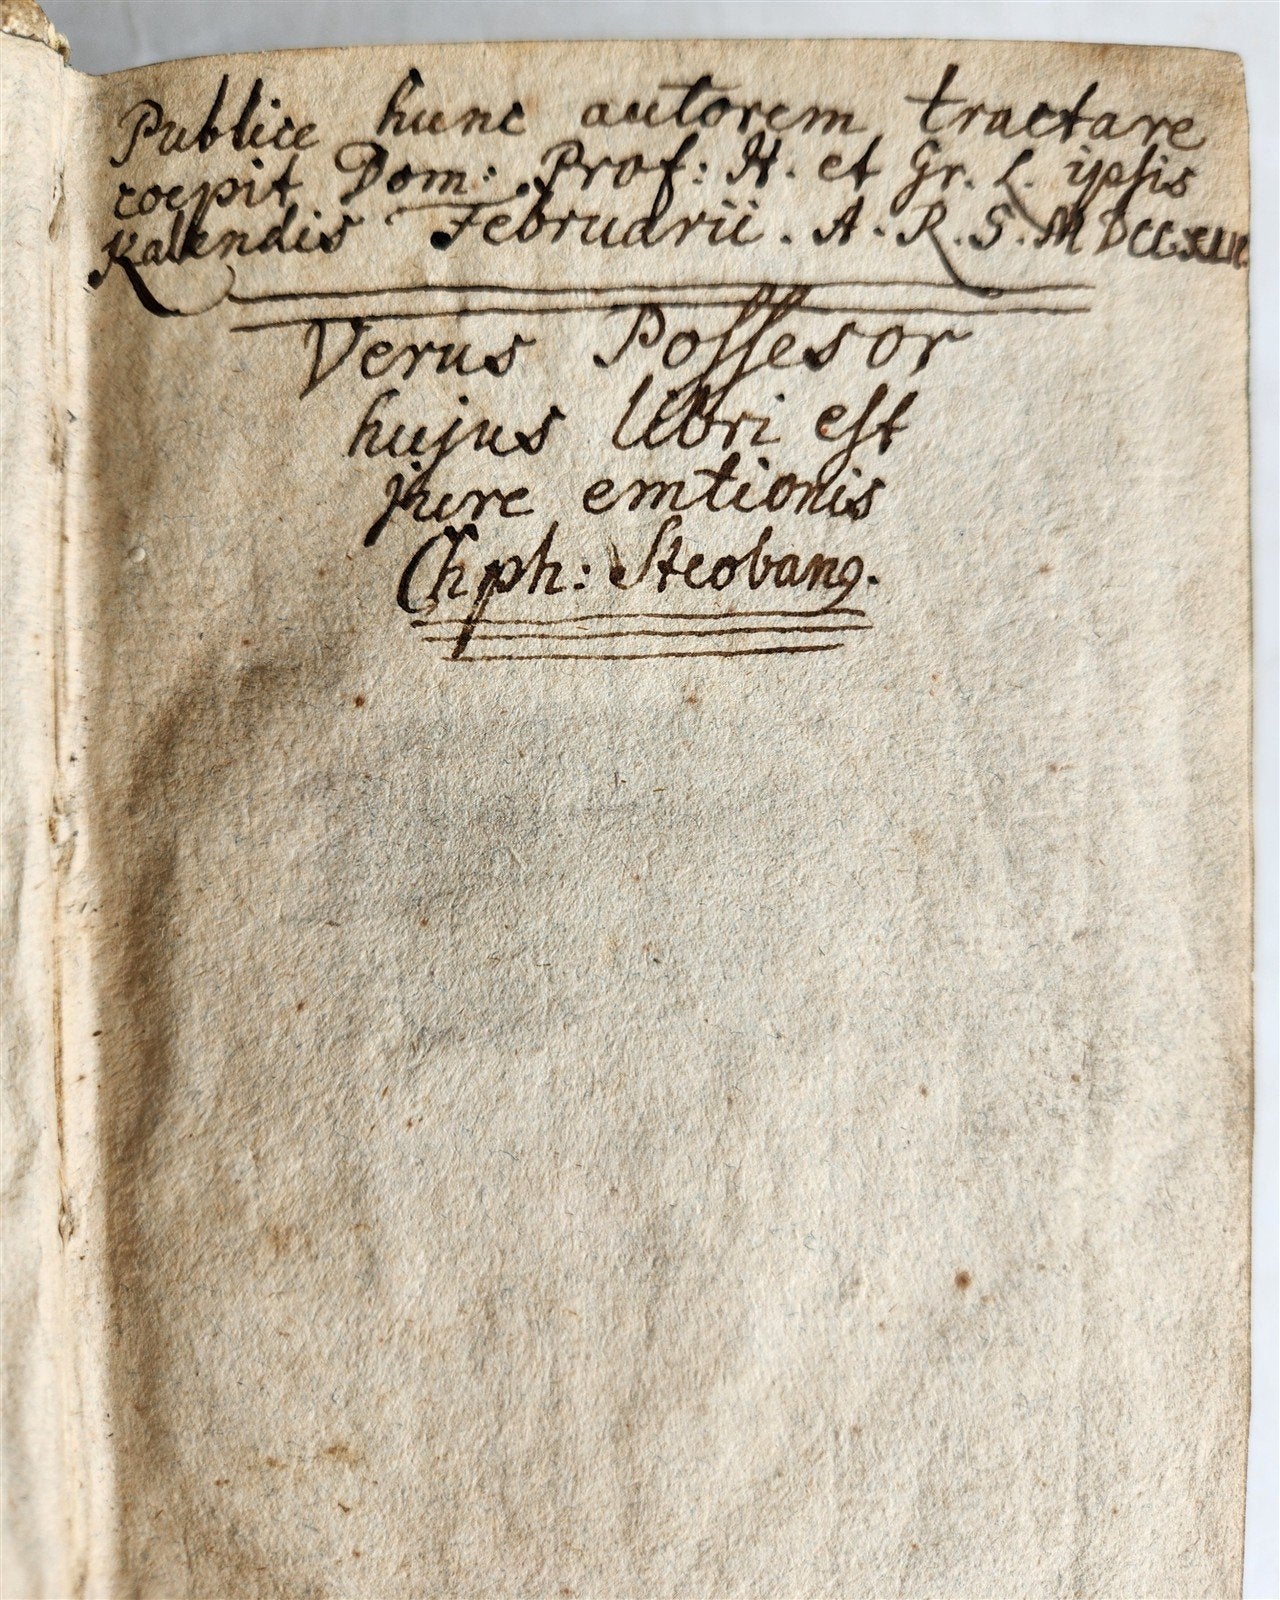 Publice hunc autorem tractare
coepit Dom: Prof: H. et Gr. L. ipsis
Kalendis Februarii. A. R. S. MDCCXLIV.
Verus Possesor
hujus libri est
jure emtionis
Chph: Steobang.